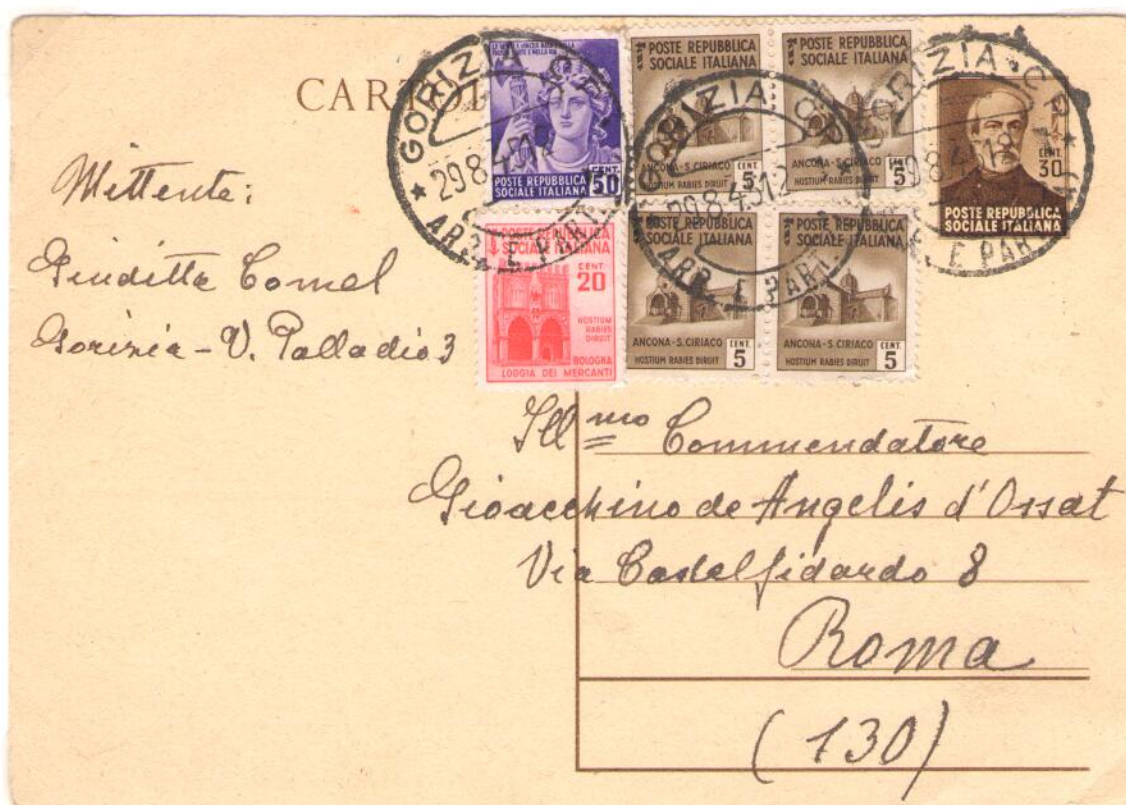 CARTOL
LA
POSTE REPUBBLICA
SOCIALE ITALIANA
CENT. 50
POSTE REPUBBLICA
SOCIALE ITALIANA
ANCONA-S. CIRIACO
HOSTIUM RABIES DIRUIT
CENT. 5
POSTE REPUBBLICA
SOCIALE ITALIANA
ANCONA-S. CIRIACO
HOSTIUM RABIES DIRUIT
CENT. 5
CENT. 30
POSTE REPUBBLICA
SOCIALE ITALIANA
GORIZIA C.P.
29 8 45 12
ARR. E PART.
GORIZIA C.P.
29 8 45 12
ARR. E PART.
GORIZIA C.P.
9 8 4 1
E PAR
POSTE REPUBBLICA
SOCIALE ITALIANA
CENT.
20
HOSTIUM
RABIES
DIRUIT
BOLOGNA
LOGGIA DEI MERCANTI
POSTE REPUBBLICA
SOCIALE ITALIANA
ANCONA-S. CIRIACO
HOSTIUM RABIES DIRUIT
CENT. 5
POSTE REPUBBLICA
SOCIALE ITALIANA
ANCONA-S. CIRIACO
HOSTIUM RABIES DIRUIT
CENT. 5
Mittente:
Giuditta Comel
Gorizia - V. Palladio 3
Ill mo Commendatore
Gioacchino de Angelis d'Ossat
Via Castelfidardo 8
Roma
(130)